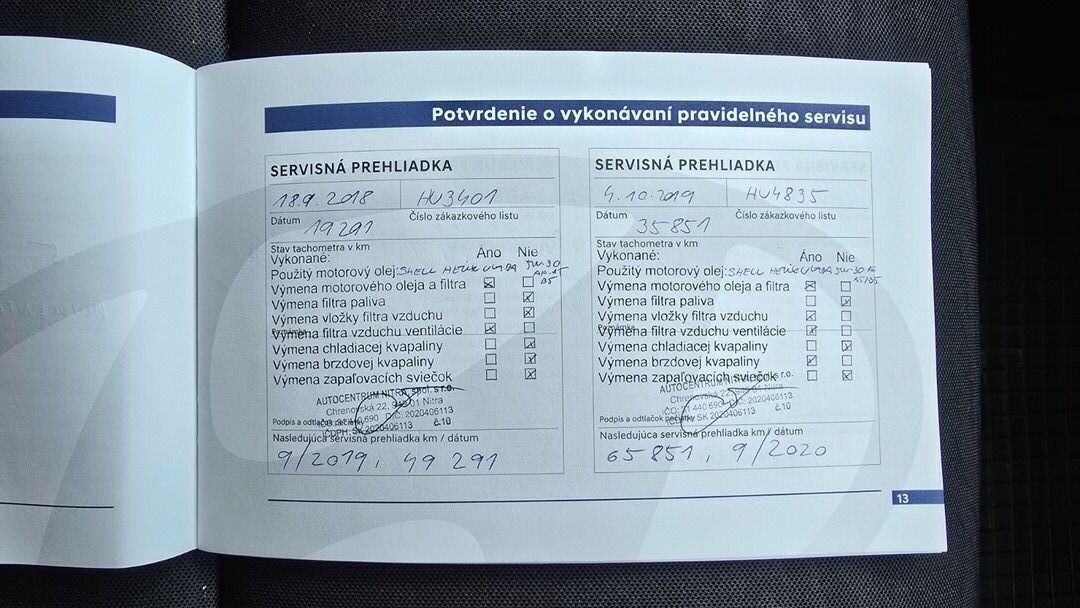 Potvrdenie o vykonávaní pravidelného servisu
SERVISNÁ PREHLIADKA
18.9.2018 HU3401
Dátum Číslo zákazkového listu
19291
Stav tachometra v km
Vykonané: Áno Nie
Použitý motorový olej: SHELL HELIX ULTRA 5W-30
Výmena motorového oleja a filtra
Výmena filtra paliva
Výmena vložky filtra vzduchu
Poznámka
Výmena filtra vzduchu ventilácie
Výmena chladiacej kvapaliny
Výmena brzdovej kvapaliny
Výmena zapaľovacích sviečok
AUTOCENTRUM NITRA, spol. s r.o.
Chrenovská 22, 949 01 Nitra
DIČ: 2020406113
Podpis a odtlačok pečiatky
IČDPH: SK 2020406113 č.10
Nasledujúca servisná prehliadka km / dátum
9/2019, 49 291
SERVISNÁ PREHLIADKA
4.10.2019 HU4835
Dátum Číslo zákazkového listu
35851
Stav tachometra v km
Vykonané: Áno Nie
Použitý motorový olej: SHELL HELIX ULTRA 5W-30
Výmena motorového oleja a filtra
Výmena filtra paliva
Výmena vložky filtra vzduchu
Poznámka
Výmena filtra vzduchu ventilácie
Výmena chladiacej kvapaliny
Výmena brzdovej kvapaliny
Výmena zapaľovacích sviečok
AUTOCENTRUM r.o.
Chrenovská 22, Nitra
2020406113
Podpis a odtlačok pečiatky
SK 2020406113 č.10
Nasledujúca servisná prehliadka km / dátum
65851, 9/2020
13